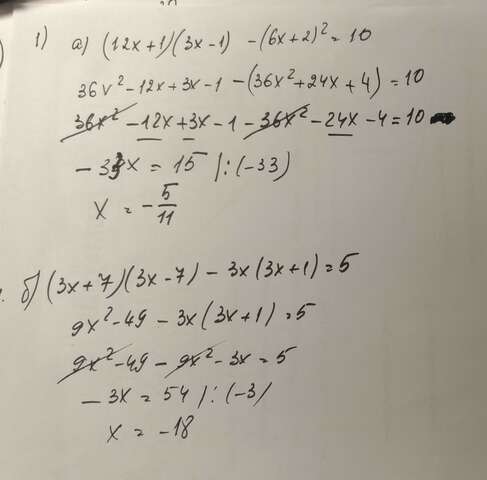 1) а) (12x+1)(3x-1) -(6x+2)²=10
36x²-12x+3x-1 -(36x²+24x+4)=10
36x² -12x+3x-1-36x²-24x-4=10
-33x = 15 |:(-33)
x = -5/11
б) (3x+7)(3x-7) - 3x(3x+1)=5
9x²-49 - 3x(3x+1)=5
9x²-49 - 9x²-3x=5
-3x = 54 |:(-3)
x = -18